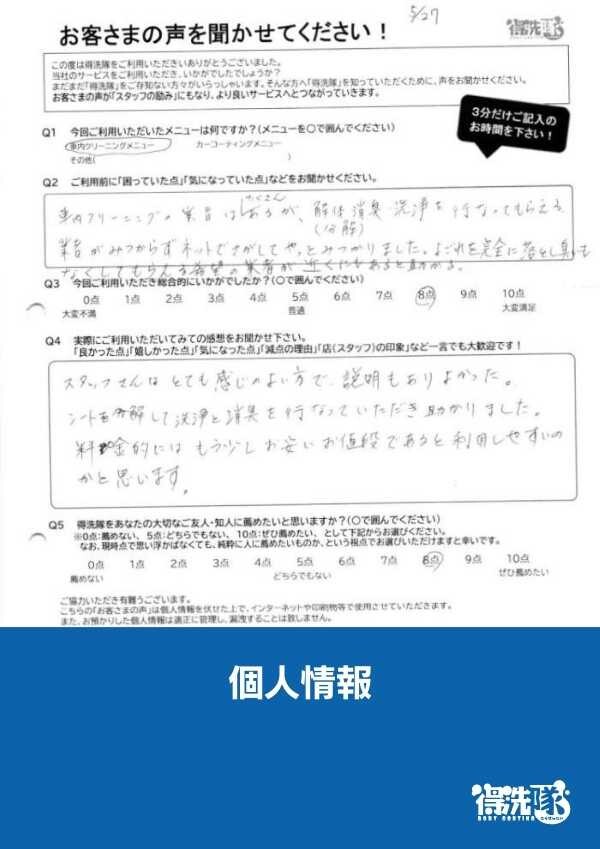 5/27
お客さまの声を聞かせてください！
得洗隊
この度は得洗隊をご利用いただきいありがとうございました。
当社のサービスをご利用いただき、いかがでしたでしょうか？
まだまだ「得洗隊」をご存知ない方々がいらっしゃいます。そんな方へ「得洗隊」を知っていただくために、声をお聞かせください。
お客さまの声が「スタッフの励み」にもなり、より良いサービスへとつながっていきます。
3分だけご記入の
お時間を下さい！
Q1 今回ご利用いただいたメニューは何ですか？（メニューを〇で囲んでください）
車内クリーニングメニュー カーコーティングメニュー
その他（ ）
Q2 ご利用前に「困っていた点」「気になっていた点」などをお聞かせください。
たくさん
車内クリーニングの業者はあるが、解体消臭・洗浄を行なってもらえる
（分解）
業者がみつからずネットでさがしてやっとみつかりました。よごれを完全に落とし臭いも
なくしてもらえる希望の業者が近くにもあると助かる。
Q3 今回ご利用いただき総合的にいかがでしたか？（〇で囲んでください）
0点 1点 2点 3点 4点 5点 6点 7点 8点 9点 10点
大変不満 普通 大変満足
Q4 実際にご利用いただいてみての感想をお聞かせ下さい。
「良かった点」「嬉しかった点」「気になった点」「減点の理由」「店（スタッフ）の印象」など一言でも大歓迎です！
スタッフさんはとても感じのよい方で、説明もありよかった。
シートを分解して洗浄と消臭を行なっていただき助かりました。
料金的にはもう少しお安いお値段であると利用しやすいの
かと思います。
Q5 得洗隊をあなたの大切なご友人・知人に薦めたいと思いますか？（〇で囲んでください）
※0点：薦めない、5点：どちらでもない、10点：ぜひ薦めたい、として下記からお選びください。
なお、現時点で思い浮かばなくても、純粋に人に薦めたいものか、という視点でお選びいただけますと幸いです。
0点 1点 2点 3点 4点 5点 6点 7点 8点 9点 10点
薦めない どちらでもない ぜひ薦めたい
ご協力いただき有難うございます。
こちらの「お客さまの声」は個人情報を伏せた上で、インターネットや印刷物等で使用させていただきます。
また、お預かりした個人情報は適正に管理し、漏洩することは致しません。
個人情報
得洗隊
BODY COATING